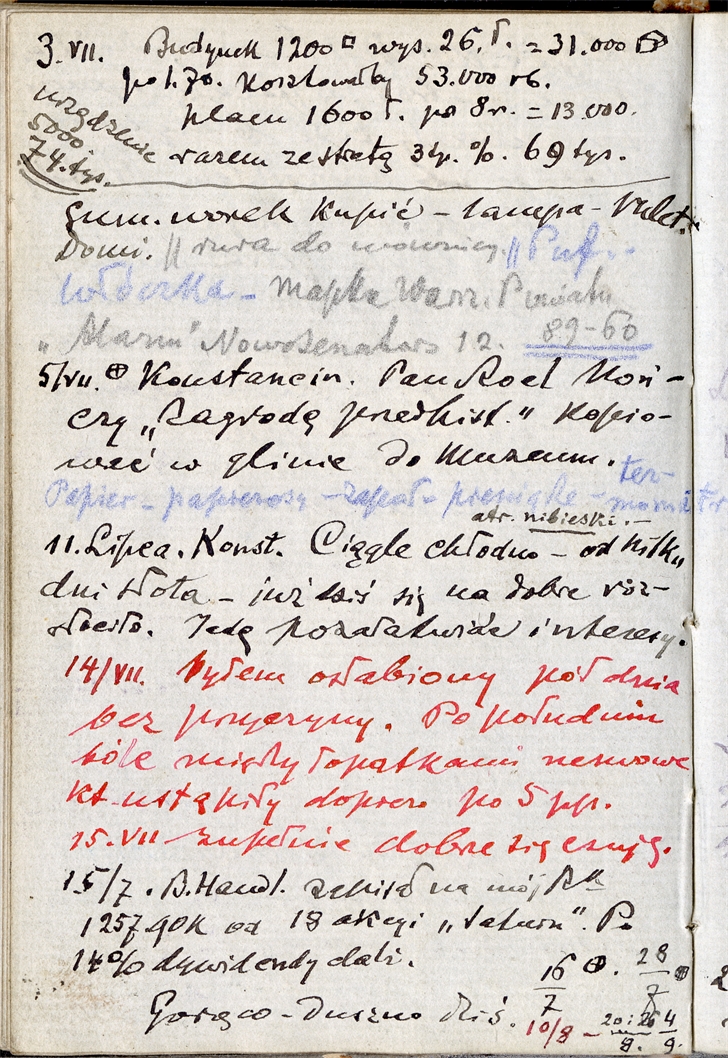 3.VII. Budynek 1200 □ wys. 26.ł. = 31.000
po 1.70. Kosztowałby 53.000 rb.
placu 1600 ł. po 8 r. = 13.000.
urządzenie
5000.
74.tys.
razem ze stratą 3 tp. %. 69 tys.
Gum. worek Kupić – lampa –
Domi. || rura do ||
włóczka – mapka Warz. Powiatu
„Alarm" Nowosenators 12. 89–60
5/VII. ⊕ Konstancin. Pan Roel Koń-
czy „Zagrodę przedhist." Kopio-
wać w glinie do Muzeum.
Papier – papierosy – zapał – pieniądze – ter-
mometr
atr. niebieski. –
11. Lipca. Konst. Ciągle chłodno – od kilku
dni słota – już dziś się na dobre roz-
słociło. Jadę pozałatwiać interesy.
14/VII. byłem osłabiony pół dnia
bez przyczyny. Po południu
bóle między łopatkami nerwowe
kt. ustąpiły dopiero po 5 pp.
15.VII zupełnie dobrze się czuję.
15/7. B. Handl. zapisał na mój R-k
1257.90k od 18 akcyi „Saturn". Po
14% dywidendy dali.
Gorąco – Duszno dziś.
16/7 ⊕. 28/7 ⊕
10/8 – 20: 26/8. 4/9.